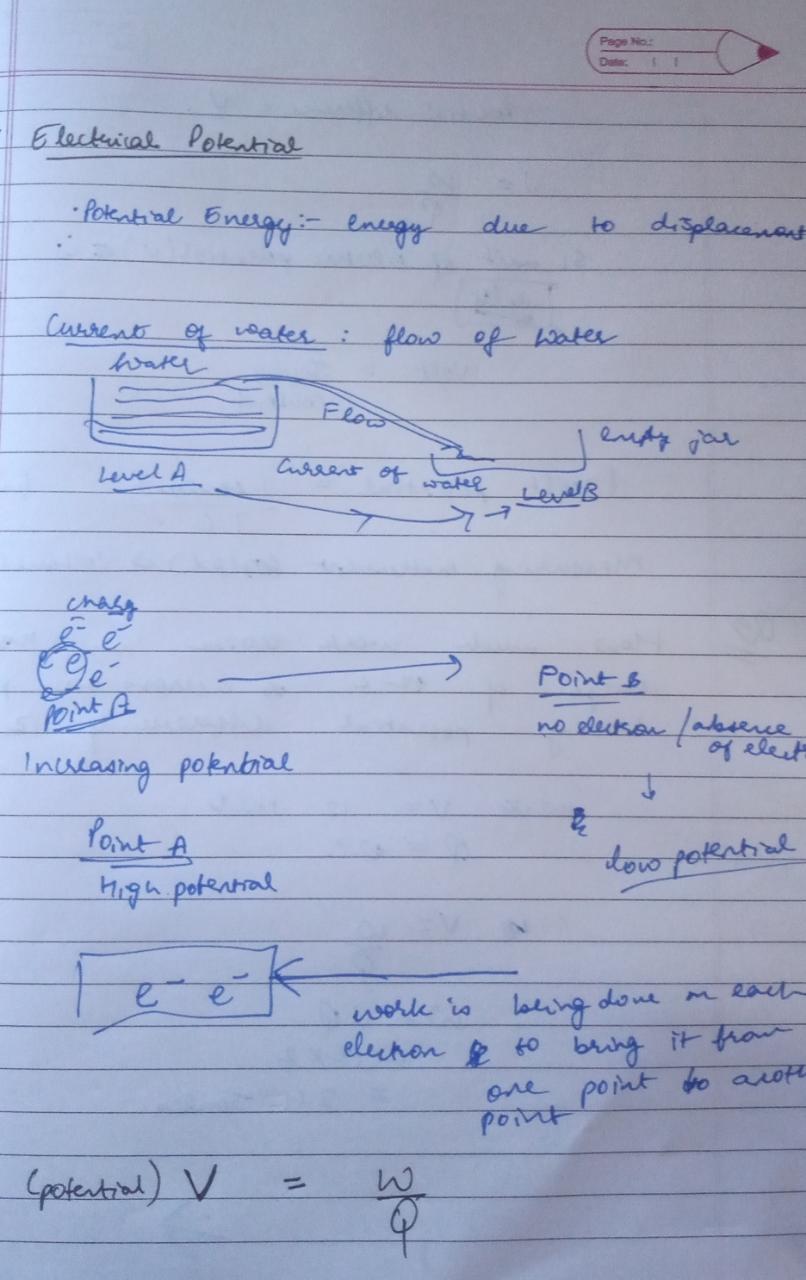 Page No.:
Date:
Electrical Potential
• Potential Energy:- energy due to displacement
Current of water : flow of water
Water
Flow
empty jar
Level A
Current of water
Level B
charg
e⁻ e⁻
e e
e e⁻
Point A
Point B
no electron / absence
of elect
Increasing potential
Point A
High potential
low potential
e⁻ e⁻
work is being done on each
electron to bring it from
one point to anoth
point
(potential) V = W
Q